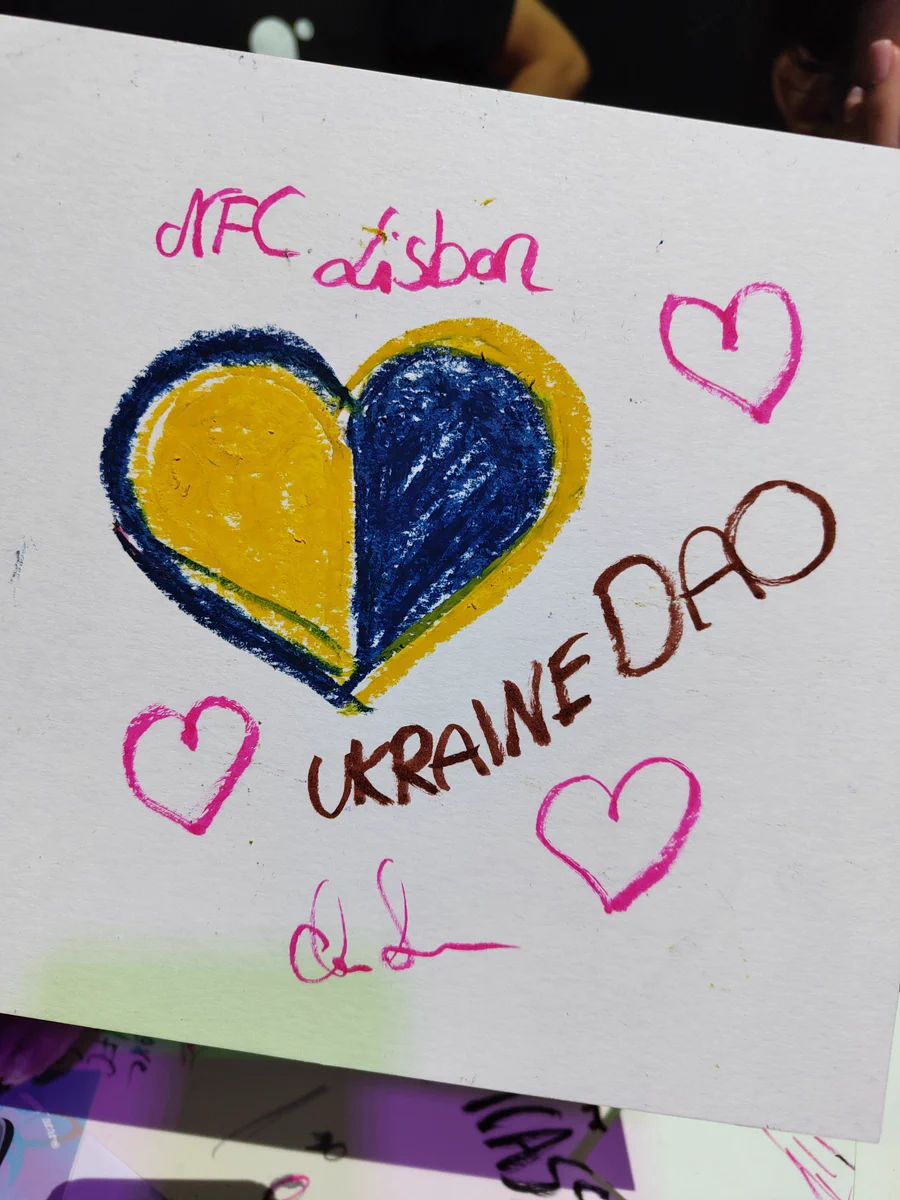 NFC Lisbon
UKRAINE DAO